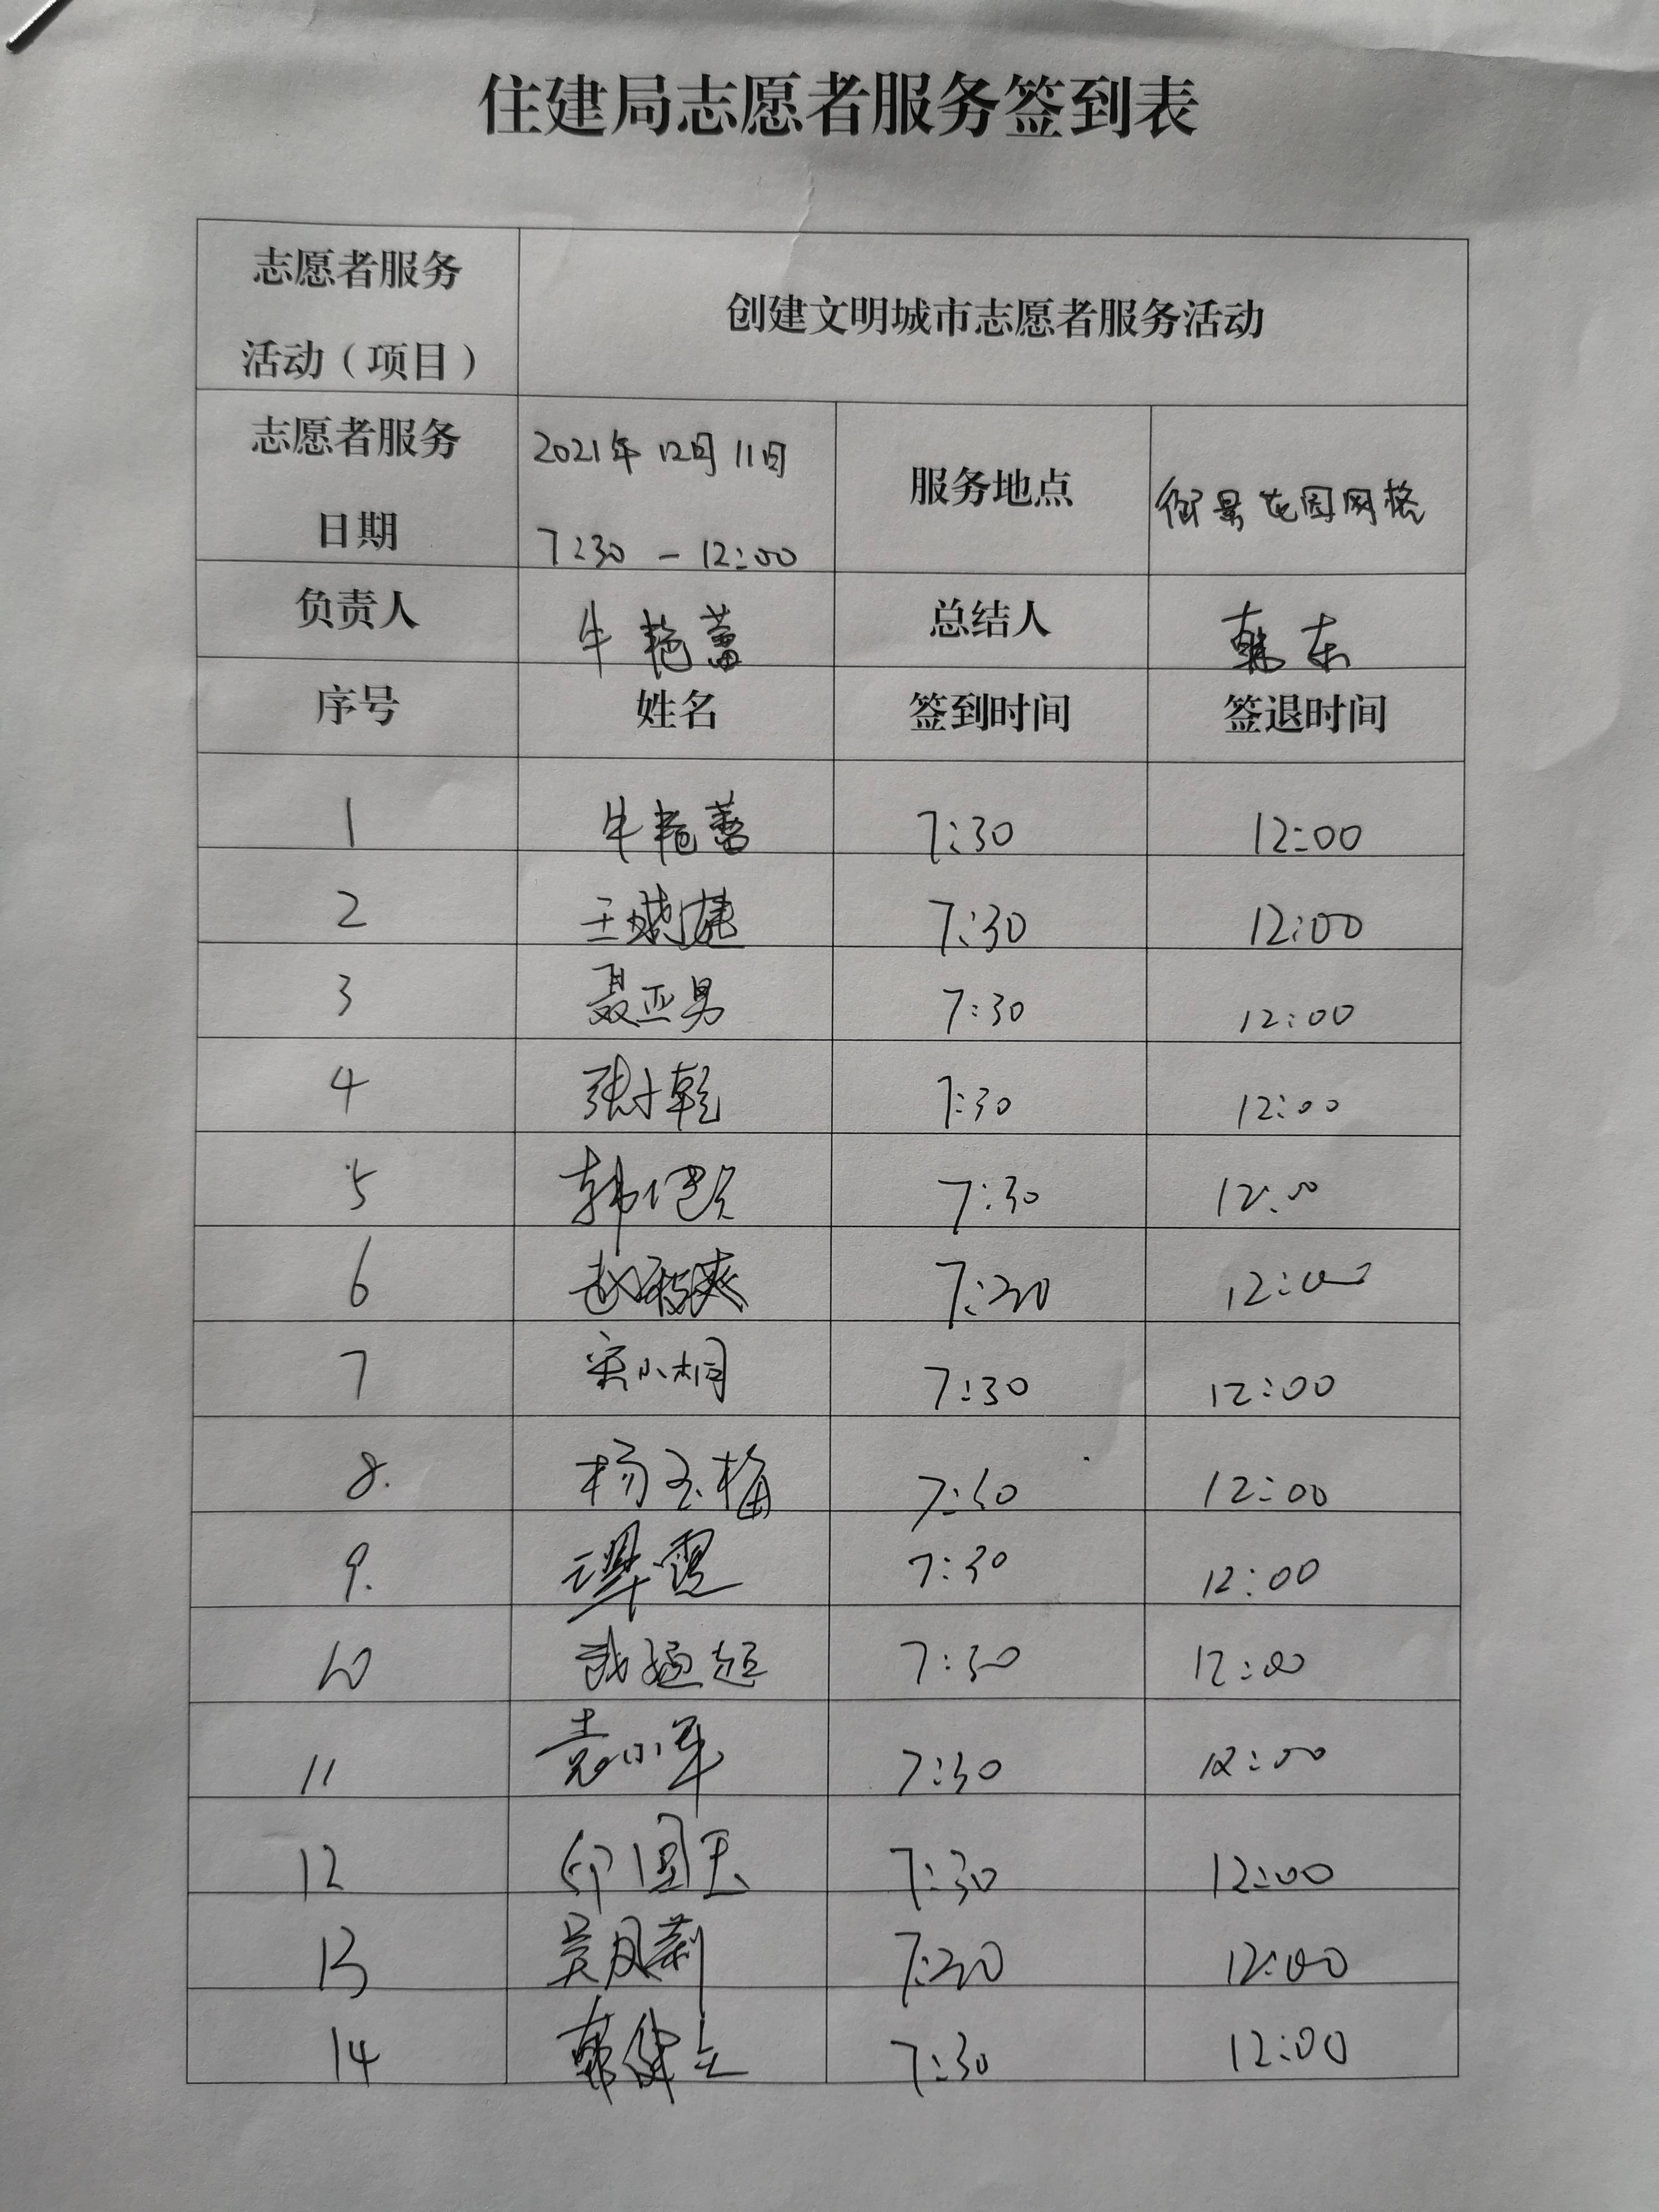 住建局志愿者服务签到表
志愿者服务
活动（项目）
创建文明城市志愿者服务活动
志愿者服务
日期
2021年12月11日
7:30 - 12:00
服务地点
御景花园网格
负责人
牛艳蕾
总结人
韩东
序号 姓名 签到时间 签退时间
1 牛艳蕾 7:30 12:00
2 王晓捷 7:30 12:00
3 聂亚男 7:30 12:00
4 张乾 7:30 12:00
5 韩 7:30 12:00
6 赵爽 7:30 12:00
7 小桐 7:30 12:00
8. 杨玉梅 7:30 12:00
9. 霞 7:30 12:00
10 超 7:30 12:00
11 袁小军 7:30 12:00
12 国玉 7:30 12:00
13 吴凤莉 7:30 12:00
14 韩 7:30 12:00